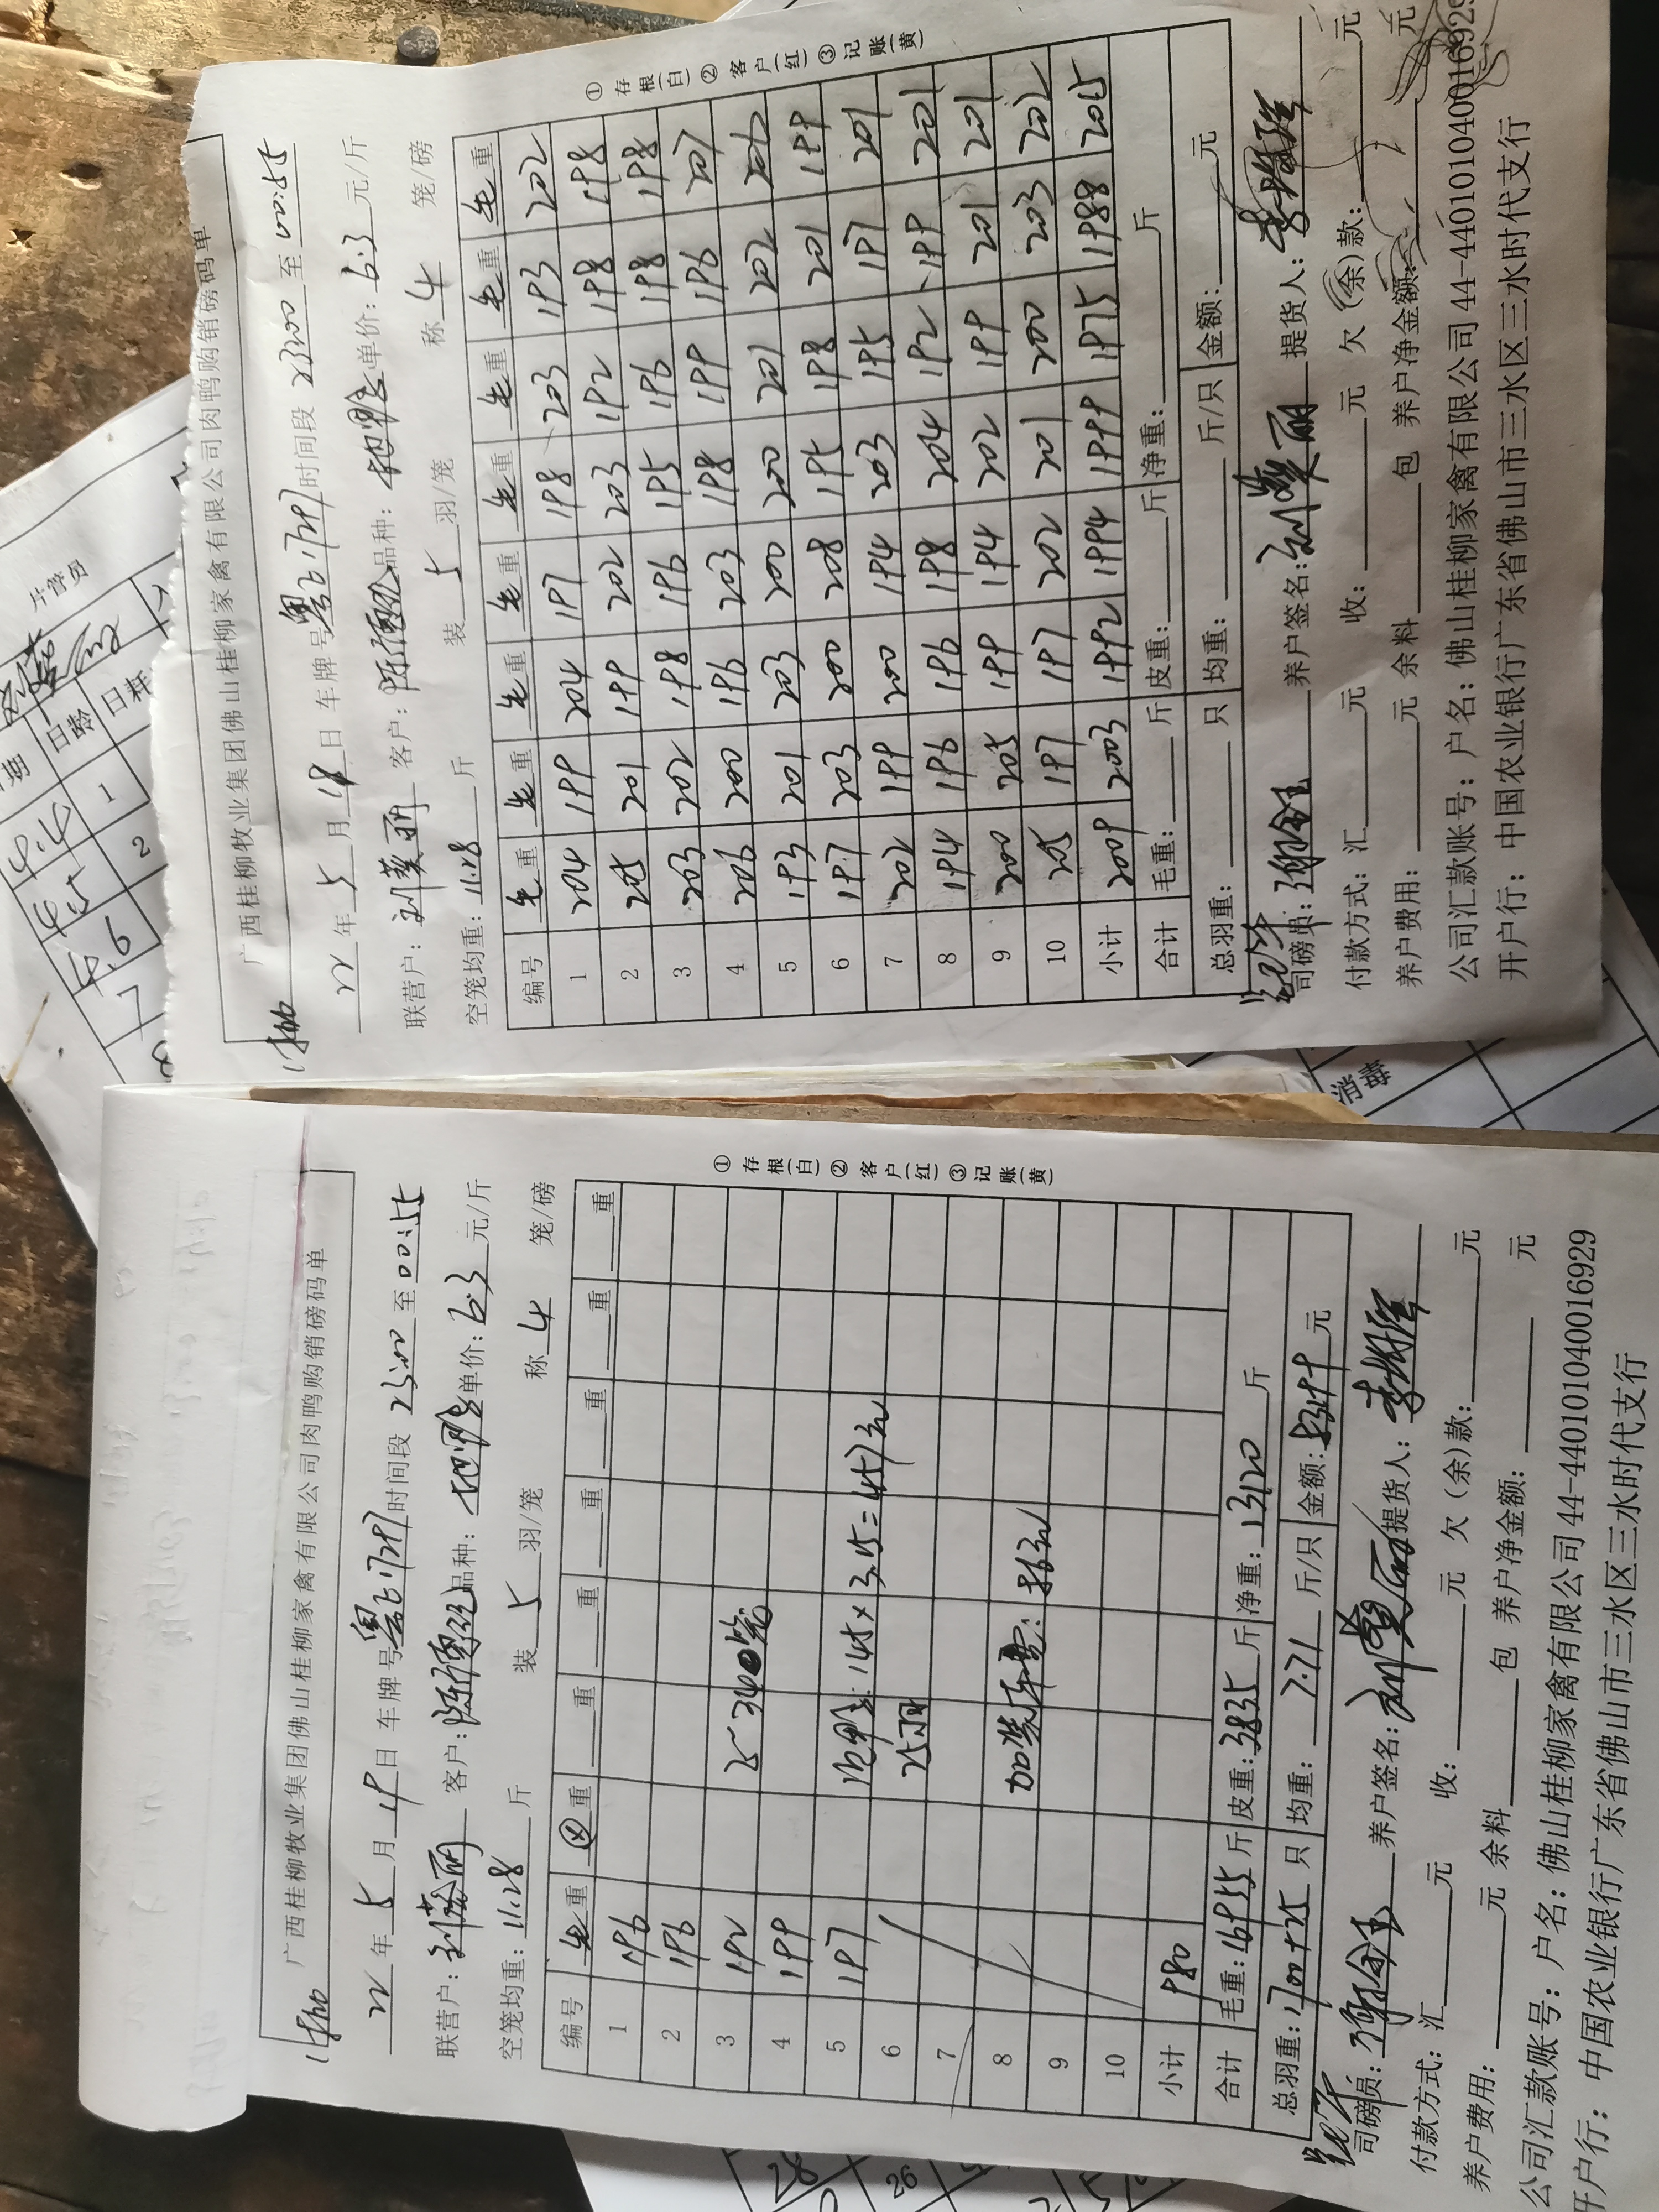 广西桂柳牧业集团佛山桂柳家禽有限公司肉鸭购销磅码单
22年5月19日 车牌号 时间段 23:00至00:55
联营户: 刘葵丽 客户: 品种: 单价: 6.3元/斤
空笼均重: 11.28斤 装5羽/笼 称4笼/磅
编号 毛重 重 重 重 重 重 重 重
1 196
2 196
3 192 25-340笼
4 199
5 197 145×3.15=457元
6 25羽
7
8 加装车费:
9
10
小计 980
合计 毛重: 16955斤 皮重: 3835斤 净重: 13120斤
总羽重: 1700+25只 均重: 7.71斤/只 金额: 元
司磅员: 养户签名: 提货人:
付款方式: 汇 元 收: 元 欠(余)款: 元
养户费用: 元 余料 包 养户净金额: 元
公司汇款账号: 户名: 佛山桂柳家禽有限公司 44-440101040016929
开户行: 中国农业银行广东省佛山市三水区三水时代支行
①存根(白)②客户(红)③记账(黄)
广西桂柳牧业集团佛山桂柳家禽有限公司肉鸭购销磅码单
22年5月18日 车牌号 时间段 23:00至00:55
联营户: 刘葵丽 客户: 品种: 单价: 6.3元/斤
空笼均重: 11.28斤 装5羽/笼 称4笼/磅
编号 毛重 毛重 毛重 毛重 毛重 毛重 毛重 毛重
1 204 199 204 197 198 203 193 202
2 205 201 199 202 203 192 198 198
3 203 202 198 196 195 196 198 198
4 206 200 196 203 198 199 196 207
5 193 201 203 200 200 201 202 206
6 197 203 200 208 195 198 201 199
7 202 199 200 194 203 195 197 201
8 194 196 196 198 204 192 199 201
9 200 205 199 194 202 199 201 201
10 205 197 197 202 201 200 203 202
小计 2009 2003 1992 1994 1999 1975 1988 2015
合计 毛重: 斤 皮重: 斤 净重: 斤
总羽重: 只 均重: 斤/只 金额: 元
司磅员: 养户签名: 刘葵丽 提货人:
付款方式: 汇 元 收: 元 欠(余)款: 元
养户费用: 元 余料 包 养户净金额: 元
公司汇款账号: 户名: 佛山桂柳家禽有限公司 44-440101040016929
开户行: 中国农业银行广东省佛山市三水区三水时代支行
①存根(白)②客户(红)③记账(黄)
片管员
期 日龄 日耗
4.4 1
4.5 2
4.6
7
8
消毒
26